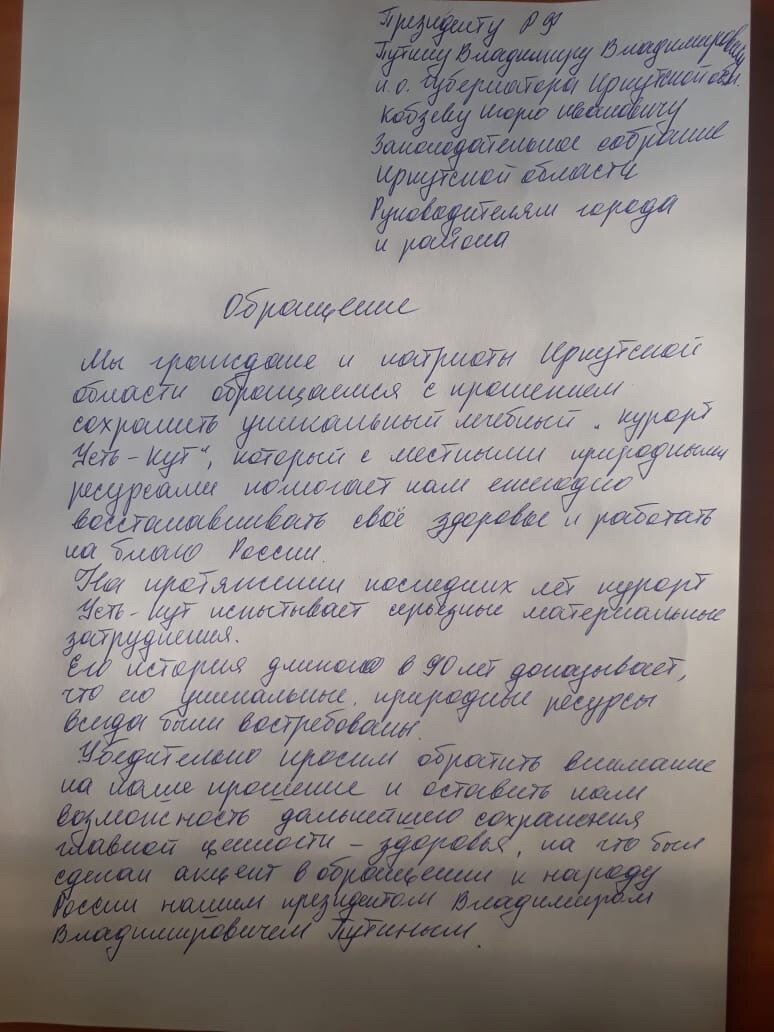 Президенту РФ
Путину Владимиру Владимировичу
и.о. Губернатора Иркутской обл.
Кобзеву Игорю Ивановичу
Законодательное собрание
Иркутской области
Руководителям города
и района
Обращение
Мы граждане и патриоты Иркутской
области обращаемся с прошением
сохранить уникальный лечебный „курорт
Усть-Кут", который с местными природными
ресурсами помогает нам ежегодно
восстанавливать своё здоровье и работать
на благо России.
На протяжении последних лет курорт
Усть-Кут испытывает серьезные материальные
затруднения.
Его история длиною в 90 лет доказывает,
что его уникальные, природные ресурсы
всегда были востребованы.
Убедительно просим обратить внимание
на наше прошение и оставить нам
возможность дальнейшего сохранения
главной ценности – здоровья, на что был
сделан акцент в обращении к народу
России нашим президентом Владимиром
Владимировичем Путиным.